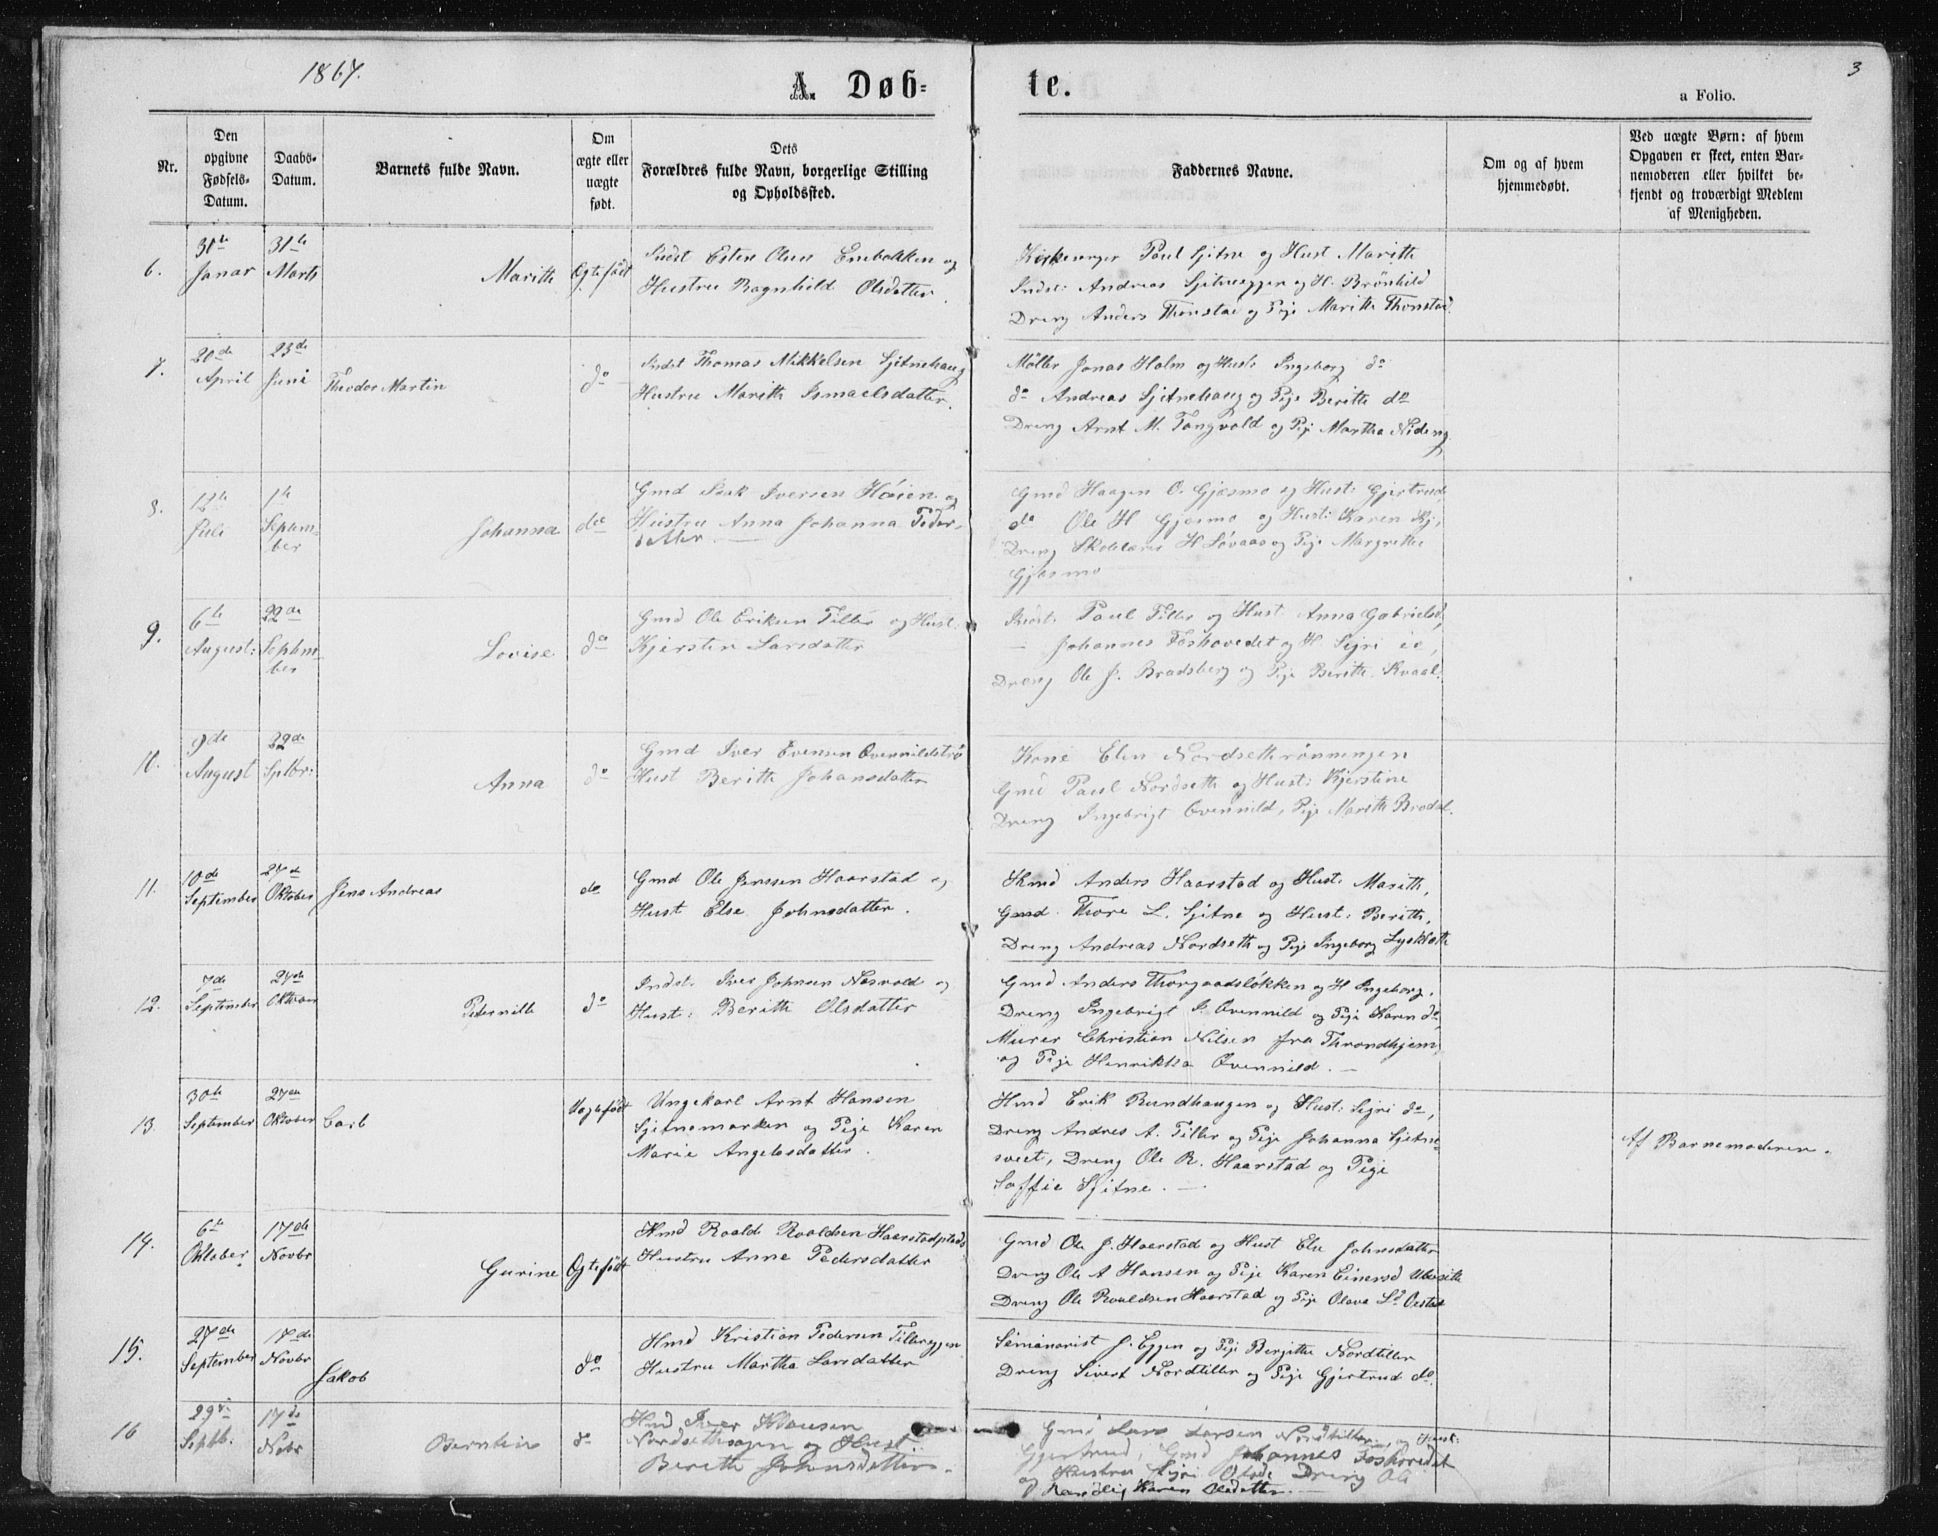 1867.
3
A. Døb-
te.
a Folio.
Nr.
Den
opgivne
Fødsels-
Datum.
Daabs-
Datum.
Barnets fulde Navn.
Om
ægte eller
uægte
født.
Dets
Forældres fulde Navn, borgerlige Stilling
og Opholdssted.
Faddernes Navne.
Om og af hvem
hjemmedøbt.
Ved uægte Børn: af hvem
Opgaven er skeet, enten Bar-
nemoderen eller hvilket be-
kjendt og troværdigt Medlem
af Menigheden.
6.
31te
Janar
31te
Marts
Marith
Ægtefødt
Indst Esten Enebakken og
Hustru Ragnhild Olsdatter.
Kirkeværger Paul Sjitne og Hust Marith
Indst: Andreas Sjitneeggen og H. Brønhild
Dreng Anders Thonstad og Pige Marith Thonstad.
7.
20de
April
23de
Juni
Theodor Martin
do
Indst Thomas Mikkelsen Sjitnehaug
Hustru Marith Ismaelsdatter.
Møller Jonas Holm og Hust: Ingeborg do
do Andreas Sjitnehaug og Pige Berith do
Dreng Arnt M. Tangvold og Pige Martha Nideng
8.
12te
Juli
1te
Septem-
ber
Johanna
do
Gmd Isak Iversen Høien og
Hustru Anna Johanna Peder-
datter.
Gmd Haagen O. Gjæsmo og Hust: Gjertrud
do Ole H Gjæsmo og Hust: Karen Kj.
Dreng Skolelærer H Løvaas og Pige Margrethe
Gjæsmo
9.
6te
August:
22de
Septem-
ber
Lovise
do
Gmd Ole Eriksen Tiller og Hust.
Kjersten Larsdatter
Indst: Paul Tiller og Hust: Anna Gabrielsd,
— Johannes Foshovedet og H. Sigri
Dreng Ole J. Bradsberg og Pige Berith Kvaal.
10.
9de
August
29de
Septbr:
Anna
do
Gmd Iver Evensen Ovennildstrø
Hust Berith Johansdatter
Kone Elen Nordsethrønningen
Gmd Paul Nordseth og Hust: Kjerstine
Dreng Ingebrigt Ovennild, Pige Marith Bradsb.
11.
10de
September
27de
Oktober
Jens Andreas
do
Gmd Ole Jenssen Haarstad og
Hust Else Johnsdatter.
Hmd Anders Haarstad og Hust: Marith,
Gmd. Thore L. Sjitne og Hust: Berith,
Dreng Andreas Nordseth og Pige Ingeborg Lysklætt
12.
7de
September
27de
Oktober
Peternille
do
Indst. Iver Johnsen Næsvold og
Hust: Berith Olsdatter
Gmd Anders Thorgaardsløkken og H Ingeborg.
Dreng Ingebrigt I. Ovennild og Pige Karen do,
Murer Christian Nilsen fra Throndhjem,
og Pige Henrikka Ovennild. —
13.
30te
September
27de
Oktober
Carl
Uægtefødt
Ungekarl Arnt Hansen
Sjitnemarken og Pige Karen
Marie Angelsdatter.
Hmd Erik Rundhaugen og Hust: Sigri do,
Dreng Andres A. Tiller og Pige Johanna Sjitne-
sveet, Dreng Ole R. Haarstad og Pige
Soffie Sjitne. —
Af Barnemoderen.
14.
6te
Oktober
17de
Novbr
Gurine
Ægtefødt
Hmd Roald Roaldsen Haarstadplads
Hustru Anne Pedersdatter
Gmd Ole J. Haarstad og Hust Else Johnsdatter
Dreng Ole A Hansen og Pige Karen Einersd
Dreng Ole Roaldsen Haarstad og Pige Olava
15.
27de
September
17de
Novbr
Jakob
do
Hmd Kristian Pedersen Tillereggen
Hustru Martha Larsdatter
Semianarist J. Eggen og Pige Bergitte Nordtiller
Dreng Sivert Nordtiller og Pige Gjertrud do.
16
29de
Septb.
17de
Nobr
Berntine
do
Hmd Iver Klausen
Nordsethsagen og Hust
Berith Johnsdatter.
Gmd Lars Larsen Nordtiller og Hust:
Gjertrud, Gmd Johannes Foshovedet
og Hustru Sigri Dreng Ole
Karen Olsdatter.